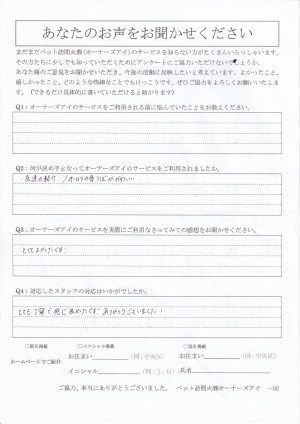 あなたのお声をお聞かせください
まだまだペット訪問火葬(オーナーズアイ)のサービスを知らない方がたくさんいらっしゃいます。
その方たちに少しでも知っていただくためにアンケートにご協力いただけないでしょうか。
あなた様のご意見をお聞かせいただき、今後の活動に反映したいと考えています。よかったこと、
嬉しかったこと、どのような些細なことでもけっこうです。ぜひご協力をよろしくお願いいたしま
す。(できるだけ具体的に書いていただけると助かります)
Q1:オーナーズアイのサービスをご利用される前に悩んでいたことをお教えください。
Q2:何が決め手となってオーナーズアイのサービスをご利用されましたか。
・友達の紹介
Q3:オーナーズアイのサービスを実際にご利用なさってみての感想をお聞かせください。
とてもよかったです!
Q4:対応したスタッフの対応はいかがでしたか。
とても丁寧で感じ良かったです! ありがとうございました!
□匿名掲載 □イニシャル掲載 □氏名掲載
ホームページでご紹介
お住まい (例:中央区) お住まい (例:中央区)
イニシャル (例:J、H) 氏名
ご協力、本当にありがとうございました。 ペット訪問火葬オーナーズアイ 一同